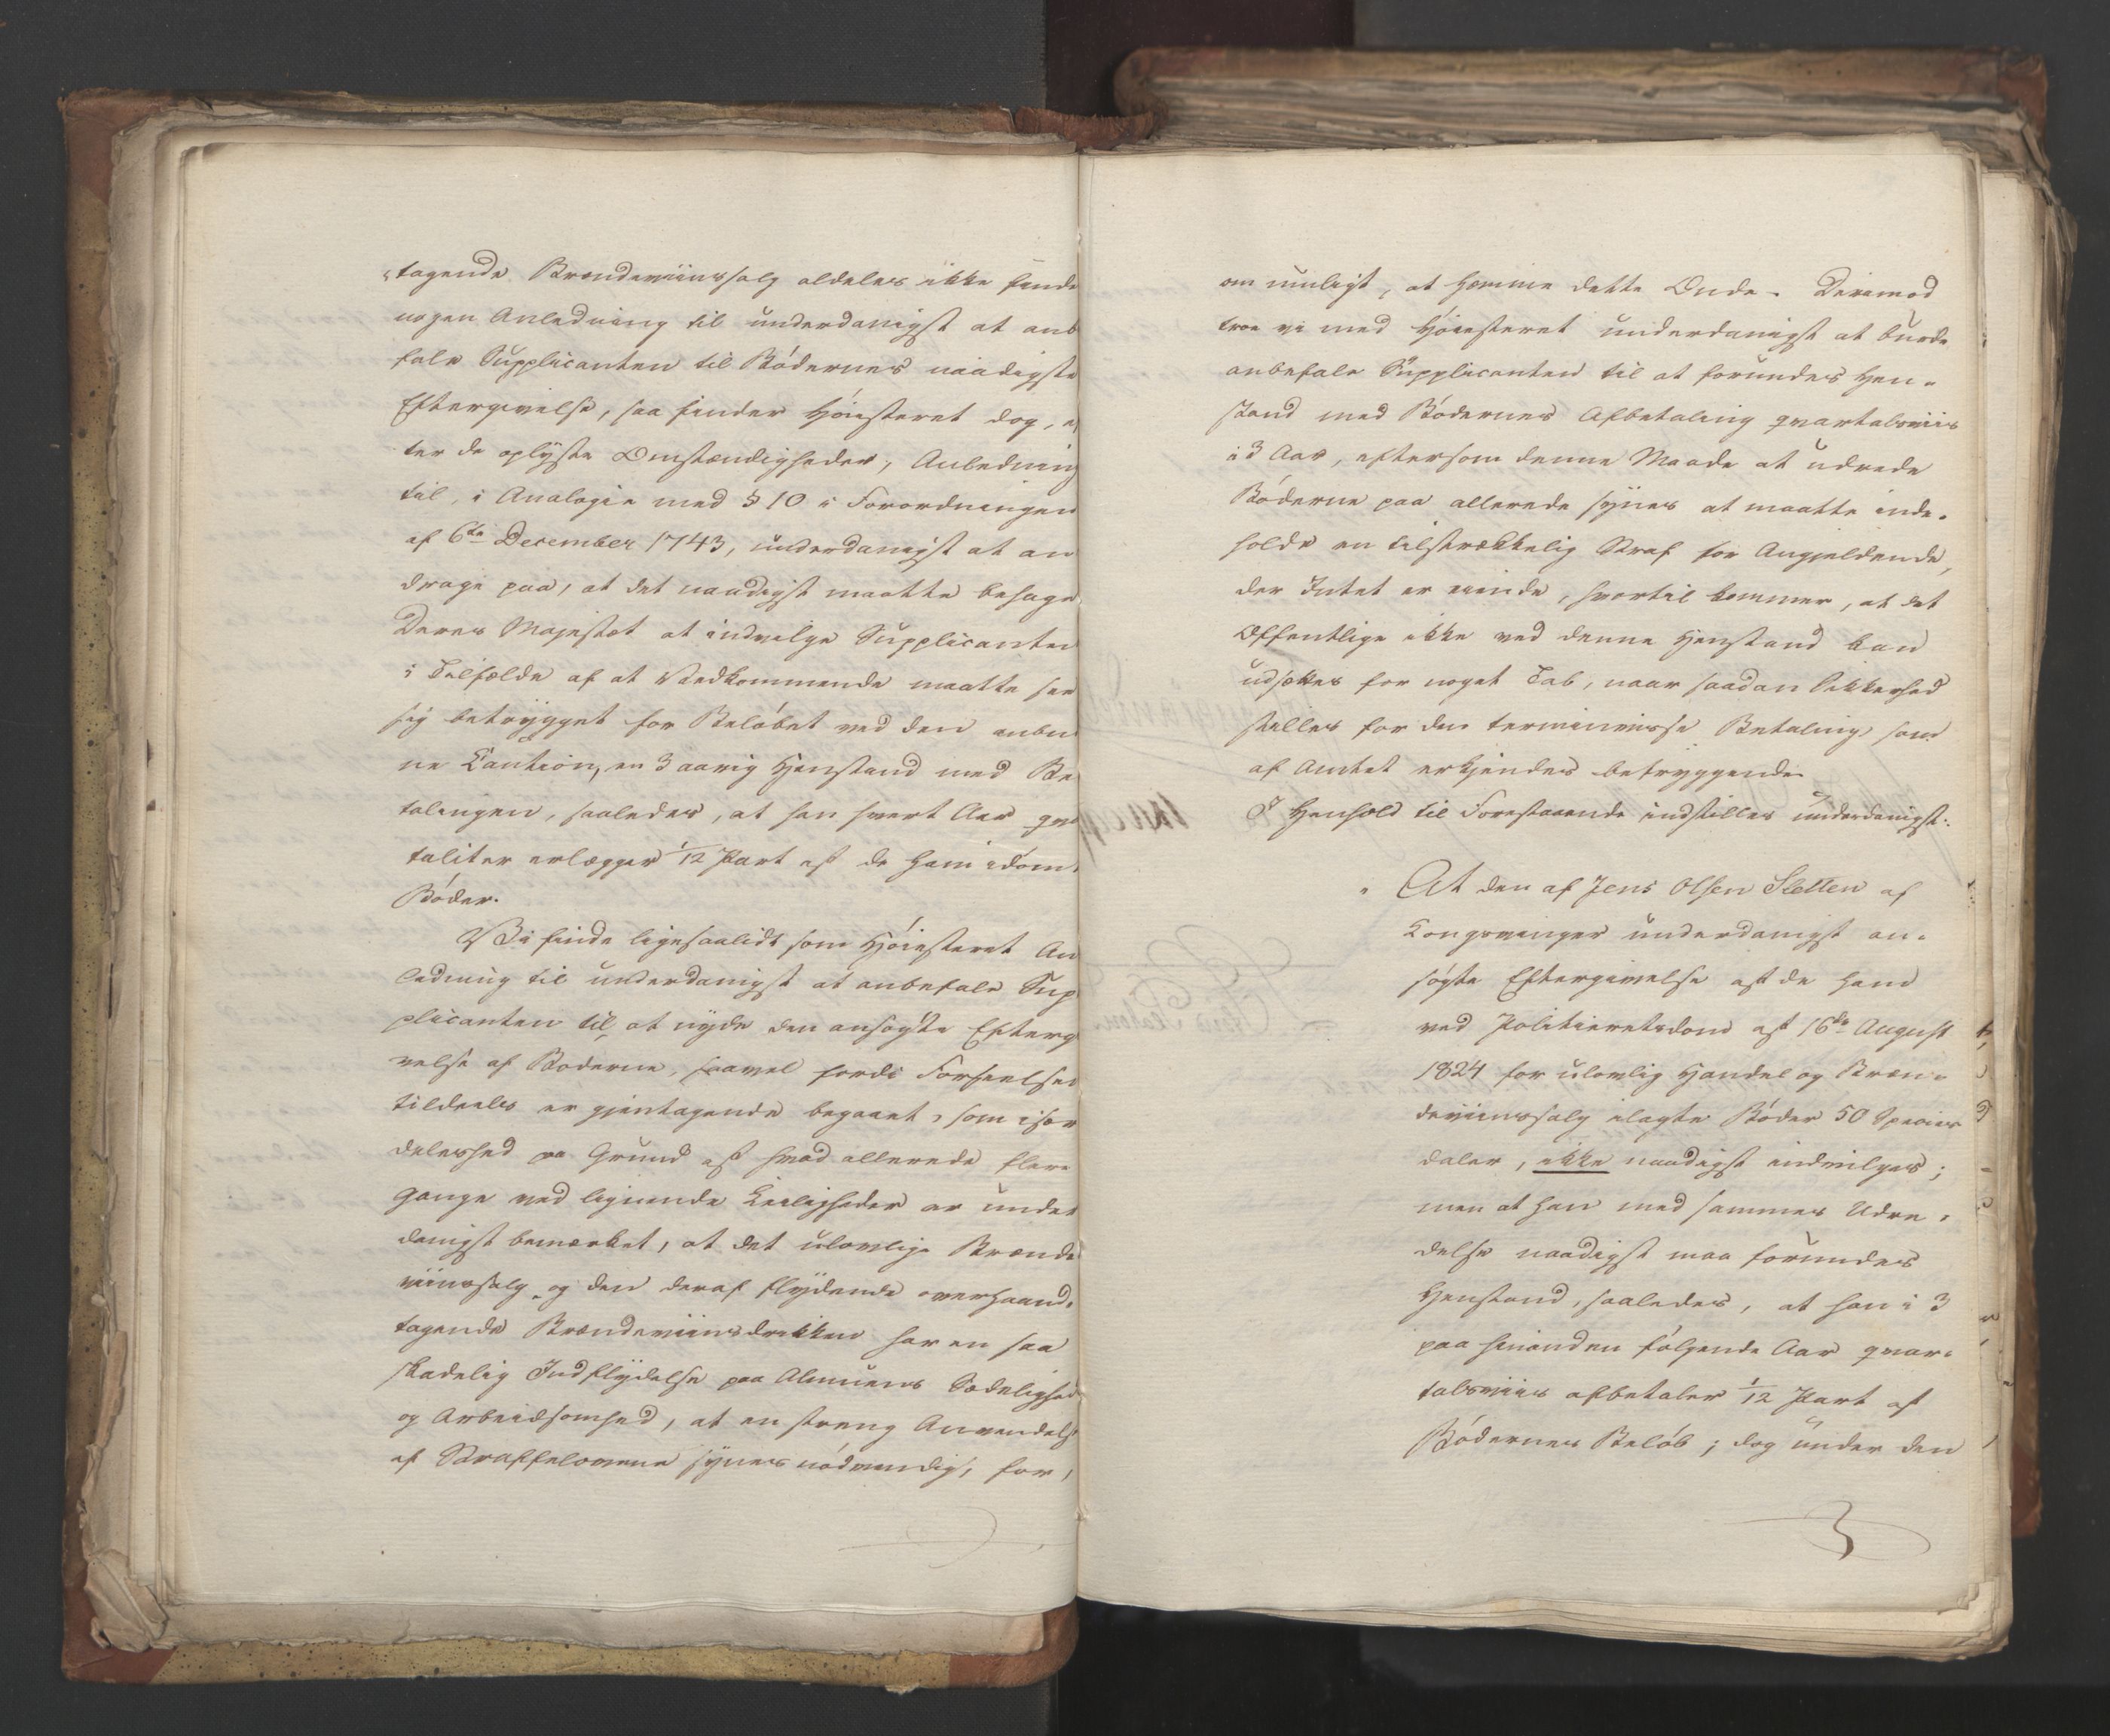 tagende Brændeviinssalg aldeles ikke finde
nogen Anledning til underdanigst at anb
fale Supplicanten til Bödernes naadigste
Eftergivelse, saa finder Höiesteret dog, ef
ter de oplyste Omstændigheder, Anledning
til, i Analogie med § 10 i Forordningen
af 6te December 1743, underdanigst at an
drage paa, at det naadigst maatte behage
Deres Majestæt at indvilge Supplicanten
i Tilfælde af at Vedkommende maatte see
sig betrygget for Belöbet ved den anbu
ne Caution, en 3 aarig Henstand med Be
talingen, saaledes, at han hvert Aar qva
taliter erlægger 1/12 Part af de ham idöm
Böder.
Vi finde ligesaalidt som Höiesteret An
ledning til underdanigst at anbefale Sup
plicanten til at nyde den ansögte Efterg
velse af Böderne, saavel fordi Forseelsen
tildeels er gjentagende begaaet, som især
deleshed paa Grund af hvad allerede flere
Gange ved lignende Leiligheder er under
danigst bemærket, at det ulovlige Brænde
viinssalg og den deraf flydende overhaand-
tagende Brændeviinsdrikken har en saa
skadelig Indflydelse paa Almuens Sædelighed
og Arbeidsomhed, at en streng Anvendels
af Straffelovene synes nödvendig, for,
om muligt, at hæmme dette Onde. Derimod
troe vi med Höiesteret underdanigst at burde
anbefale Supplicanten til at forundes Hen-
stand med Bödernes Afbetaling qvartalsviis
i 3 Aar, eftersom denne Maade at udrede
Böderne paa allerede synes at maatte inde-
holde en tilstrækkelig Straf for Angjeldende,
der Intet er eiende, hvortil kommer, at det
Offentlige ikke ved denne Henstand kan
udsættes for noget Tab, naar saadan Sikkerhed
stilles for den terminvisse Betaling, som
af Amtet erkjendes betryggende.
I Henhold til Forestaaende indstilles underdanigst:
At den af Jens Olsen Sletten af
Kongsvinger underdanigst an-
søgte Eftergivelse af de ham
ved Politieretsdom af 16de August
1824 for ulovlig Handel og Bræn-
deviinssalg ilagte Böder 50 Species
daler, ikke naadigst indvilges;
men at han med sammes Udre-
delse naadigst maa forundes
Henstand, saaledes, at han i 3
paa hinanden fölgende Aar qvar-
talsviis afbetaler 1/12 Part af
Bödernes Belöb; dog under den